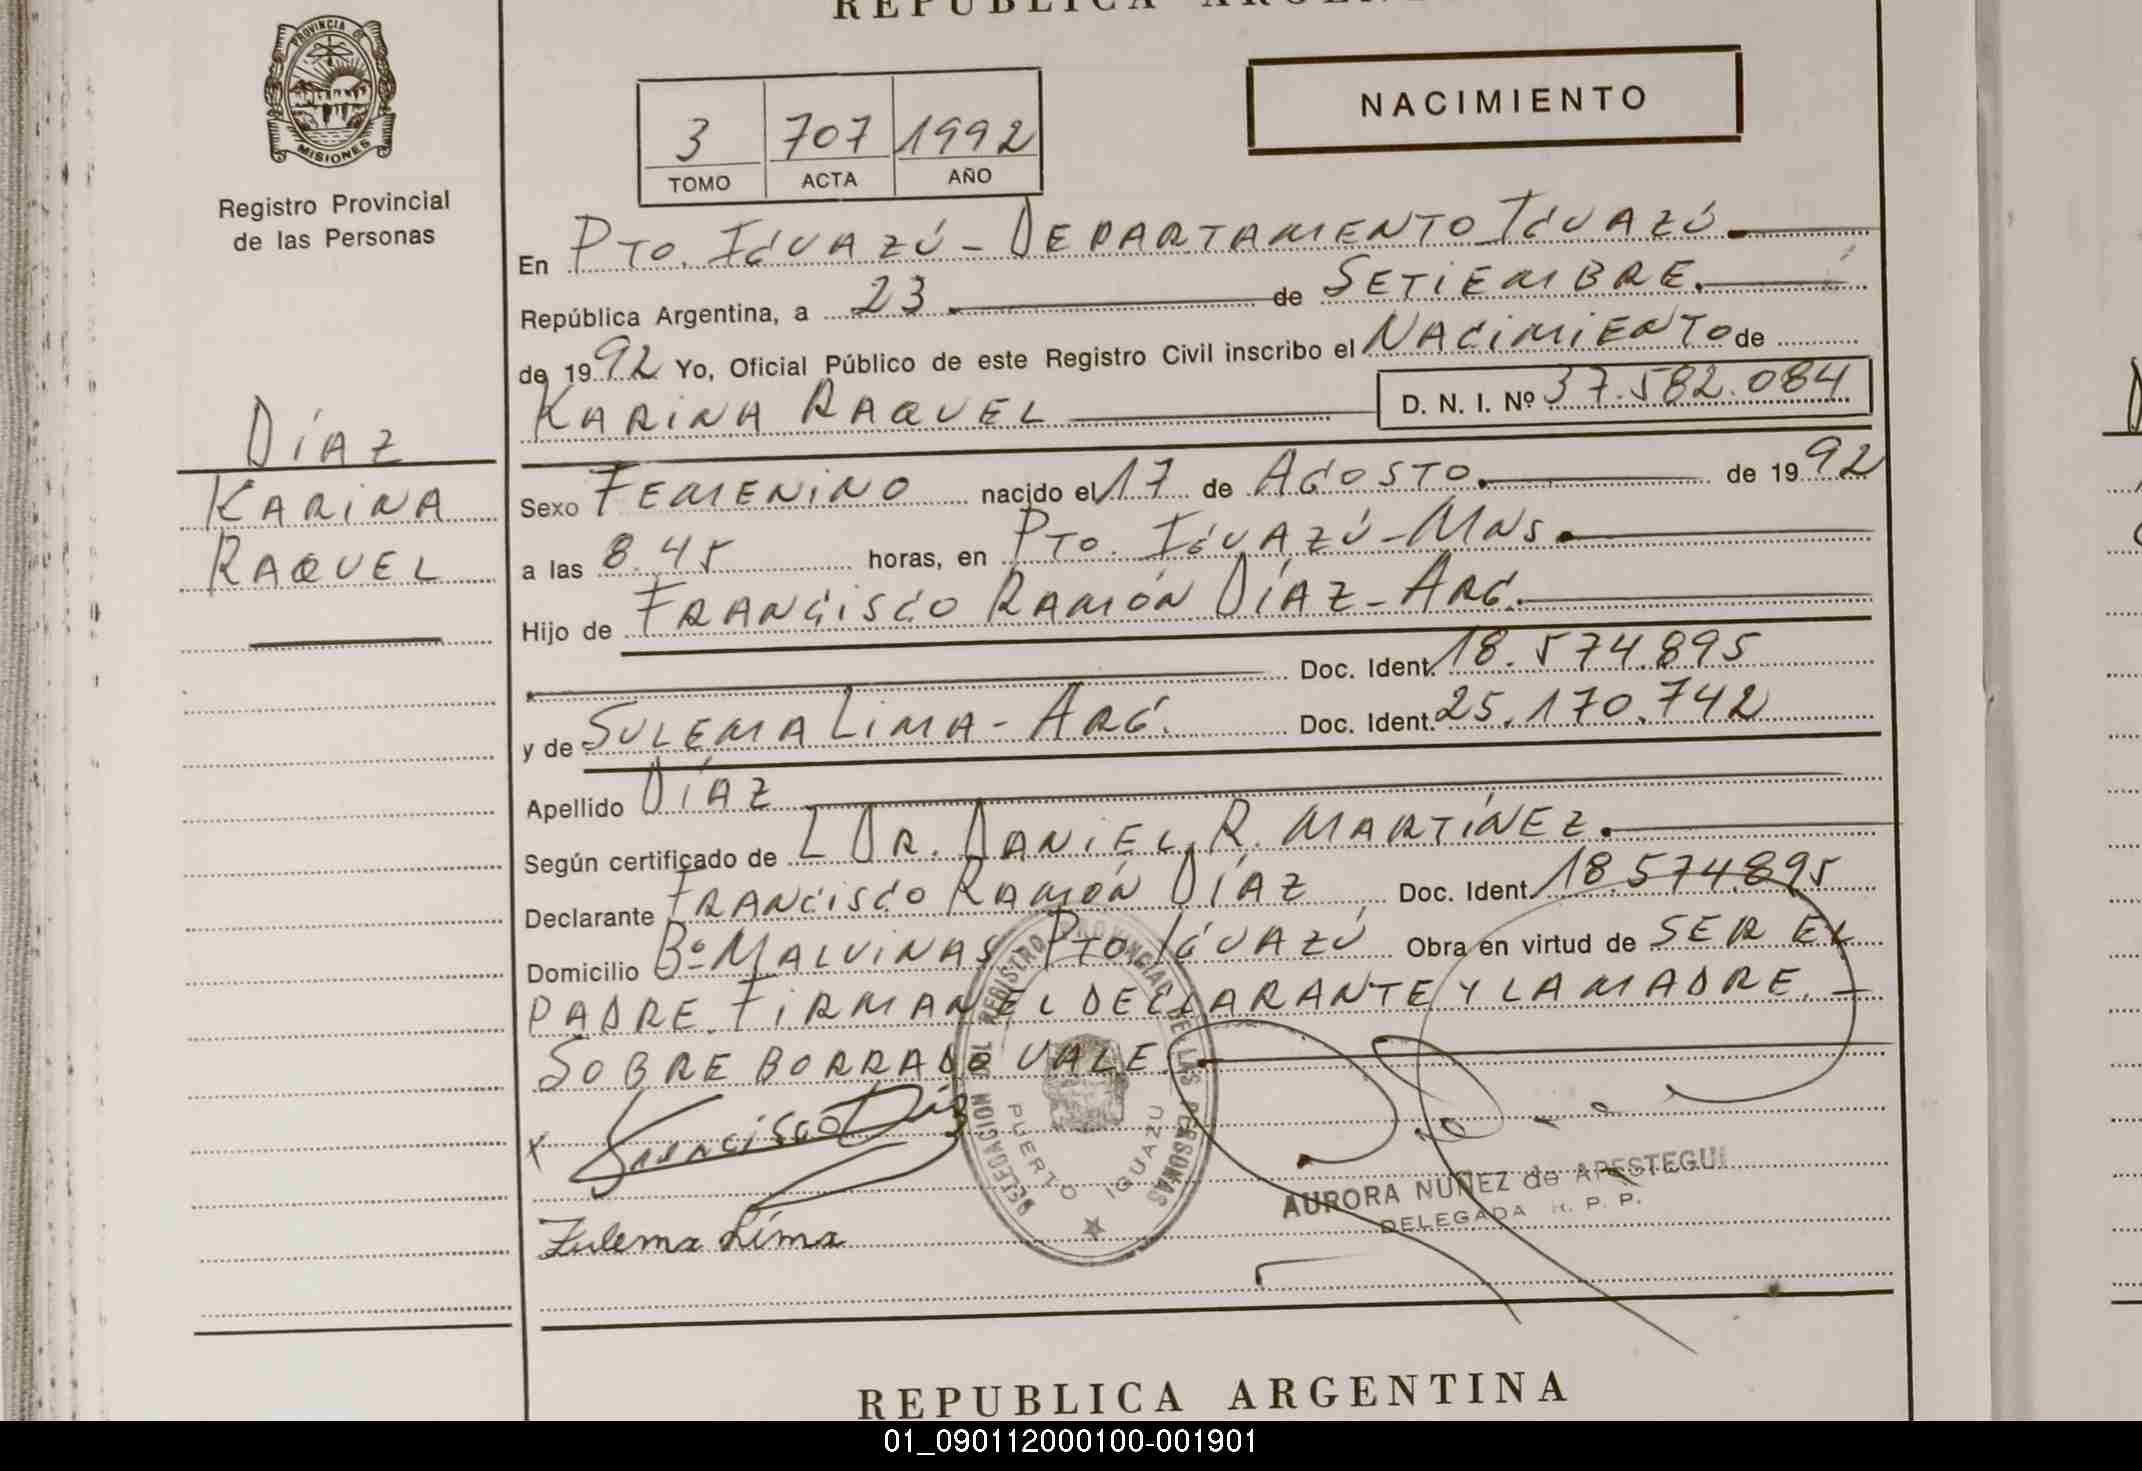 REPUBLICA ARGENTINA
PROVINCIA DE
MISIONES
Registro Provincial
de las Personas
3 707 1992
TOMO ACTA AÑO
NACIMIENTO
En PTO. IGUAZÚ - DEPARTAMENTO IGUAZÚ
República Argentina, a 23 de SETIEMBRE.
de 1992 Yo, Oficial Público de este Registro Civil inscribo el NACIMIENTO de
KARINA RAQUEL D. N. I. Nº 37.582.084
DÍAZ
KARINA
RAQUEL
Sexo FEMENINO nacido el 17 de AGOSTO. de 1992
a las 8.45 horas, en PTO. IGUAZÚ - MNS.
Hijo de FRANCISCO RAMÓN DÍAZ - ARG.
Doc. Ident. 18.574.895
y de SULEMA LIMA - ARG. Doc. Ident. 25.170.742
Apellido DÍAZ
Según certificado de L DR. DANIEL R. MARTÍNEZ.
Declarante FRANCISCO RAMÓN DÍAZ Doc. Ident. 18.574.895
Domicilio Bº MALVINAS PTO. IGUAZÚ Obra en virtud de SER EL
PADRE. FIRMAN EL DECLARANTE Y LA MADRE.
SOBRE BORRADO VALE.
x Francisco Díaz
Zulema Lima
DELEGACION 71 REGISTRO PROVINCIAL DE LAS PERSONAS
PUERTO IGUAZU
AURORA NUÑEZ de ARESTEGUI
DELEGADA R. P. P.
REPUBLICA ARGENTINA
01_090112000100-001901